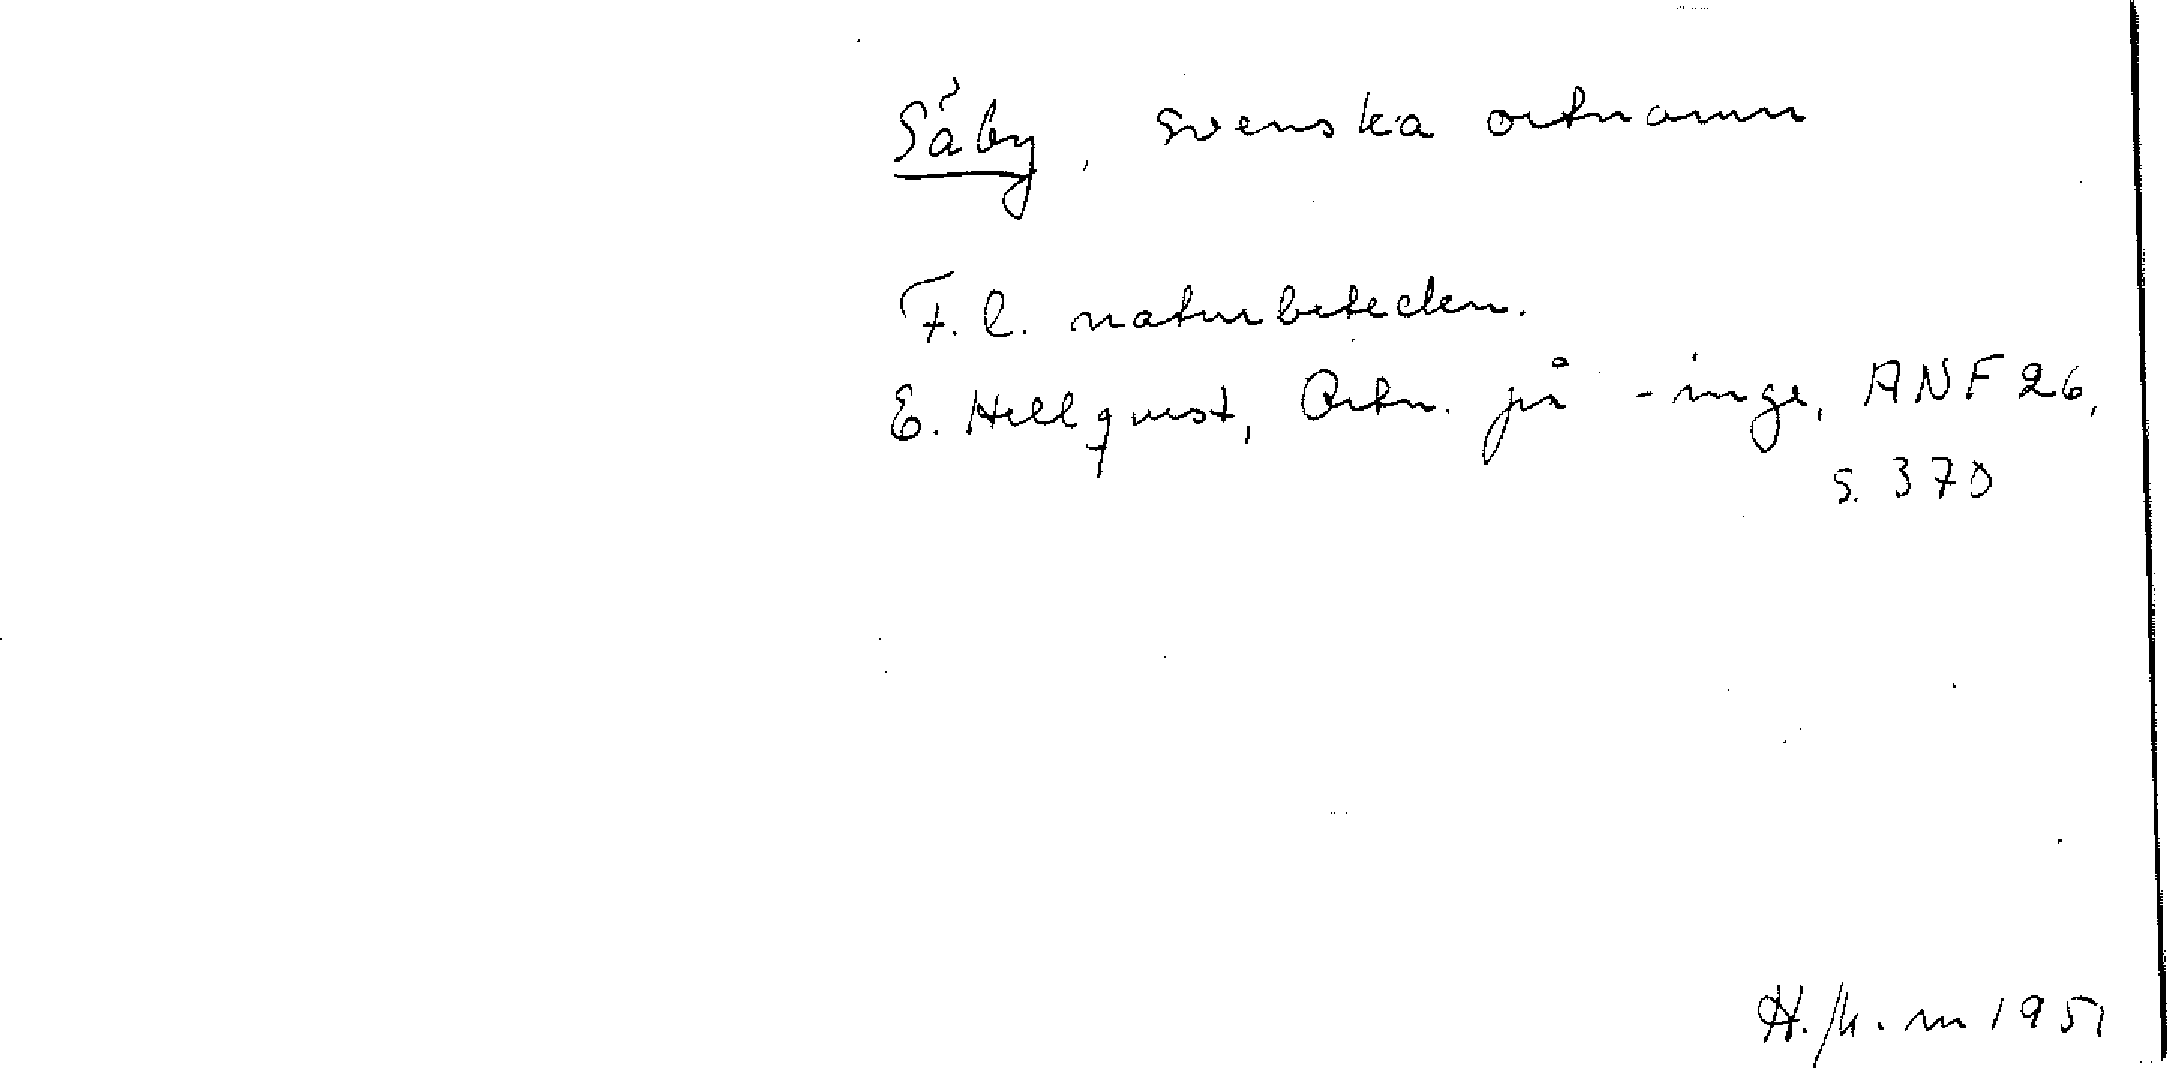 Säby, svenska ortnamn
F. l. naturbeteckn.
E. Hellqvist, Ortn. på -inge, ANF 26,
s. 370
1951